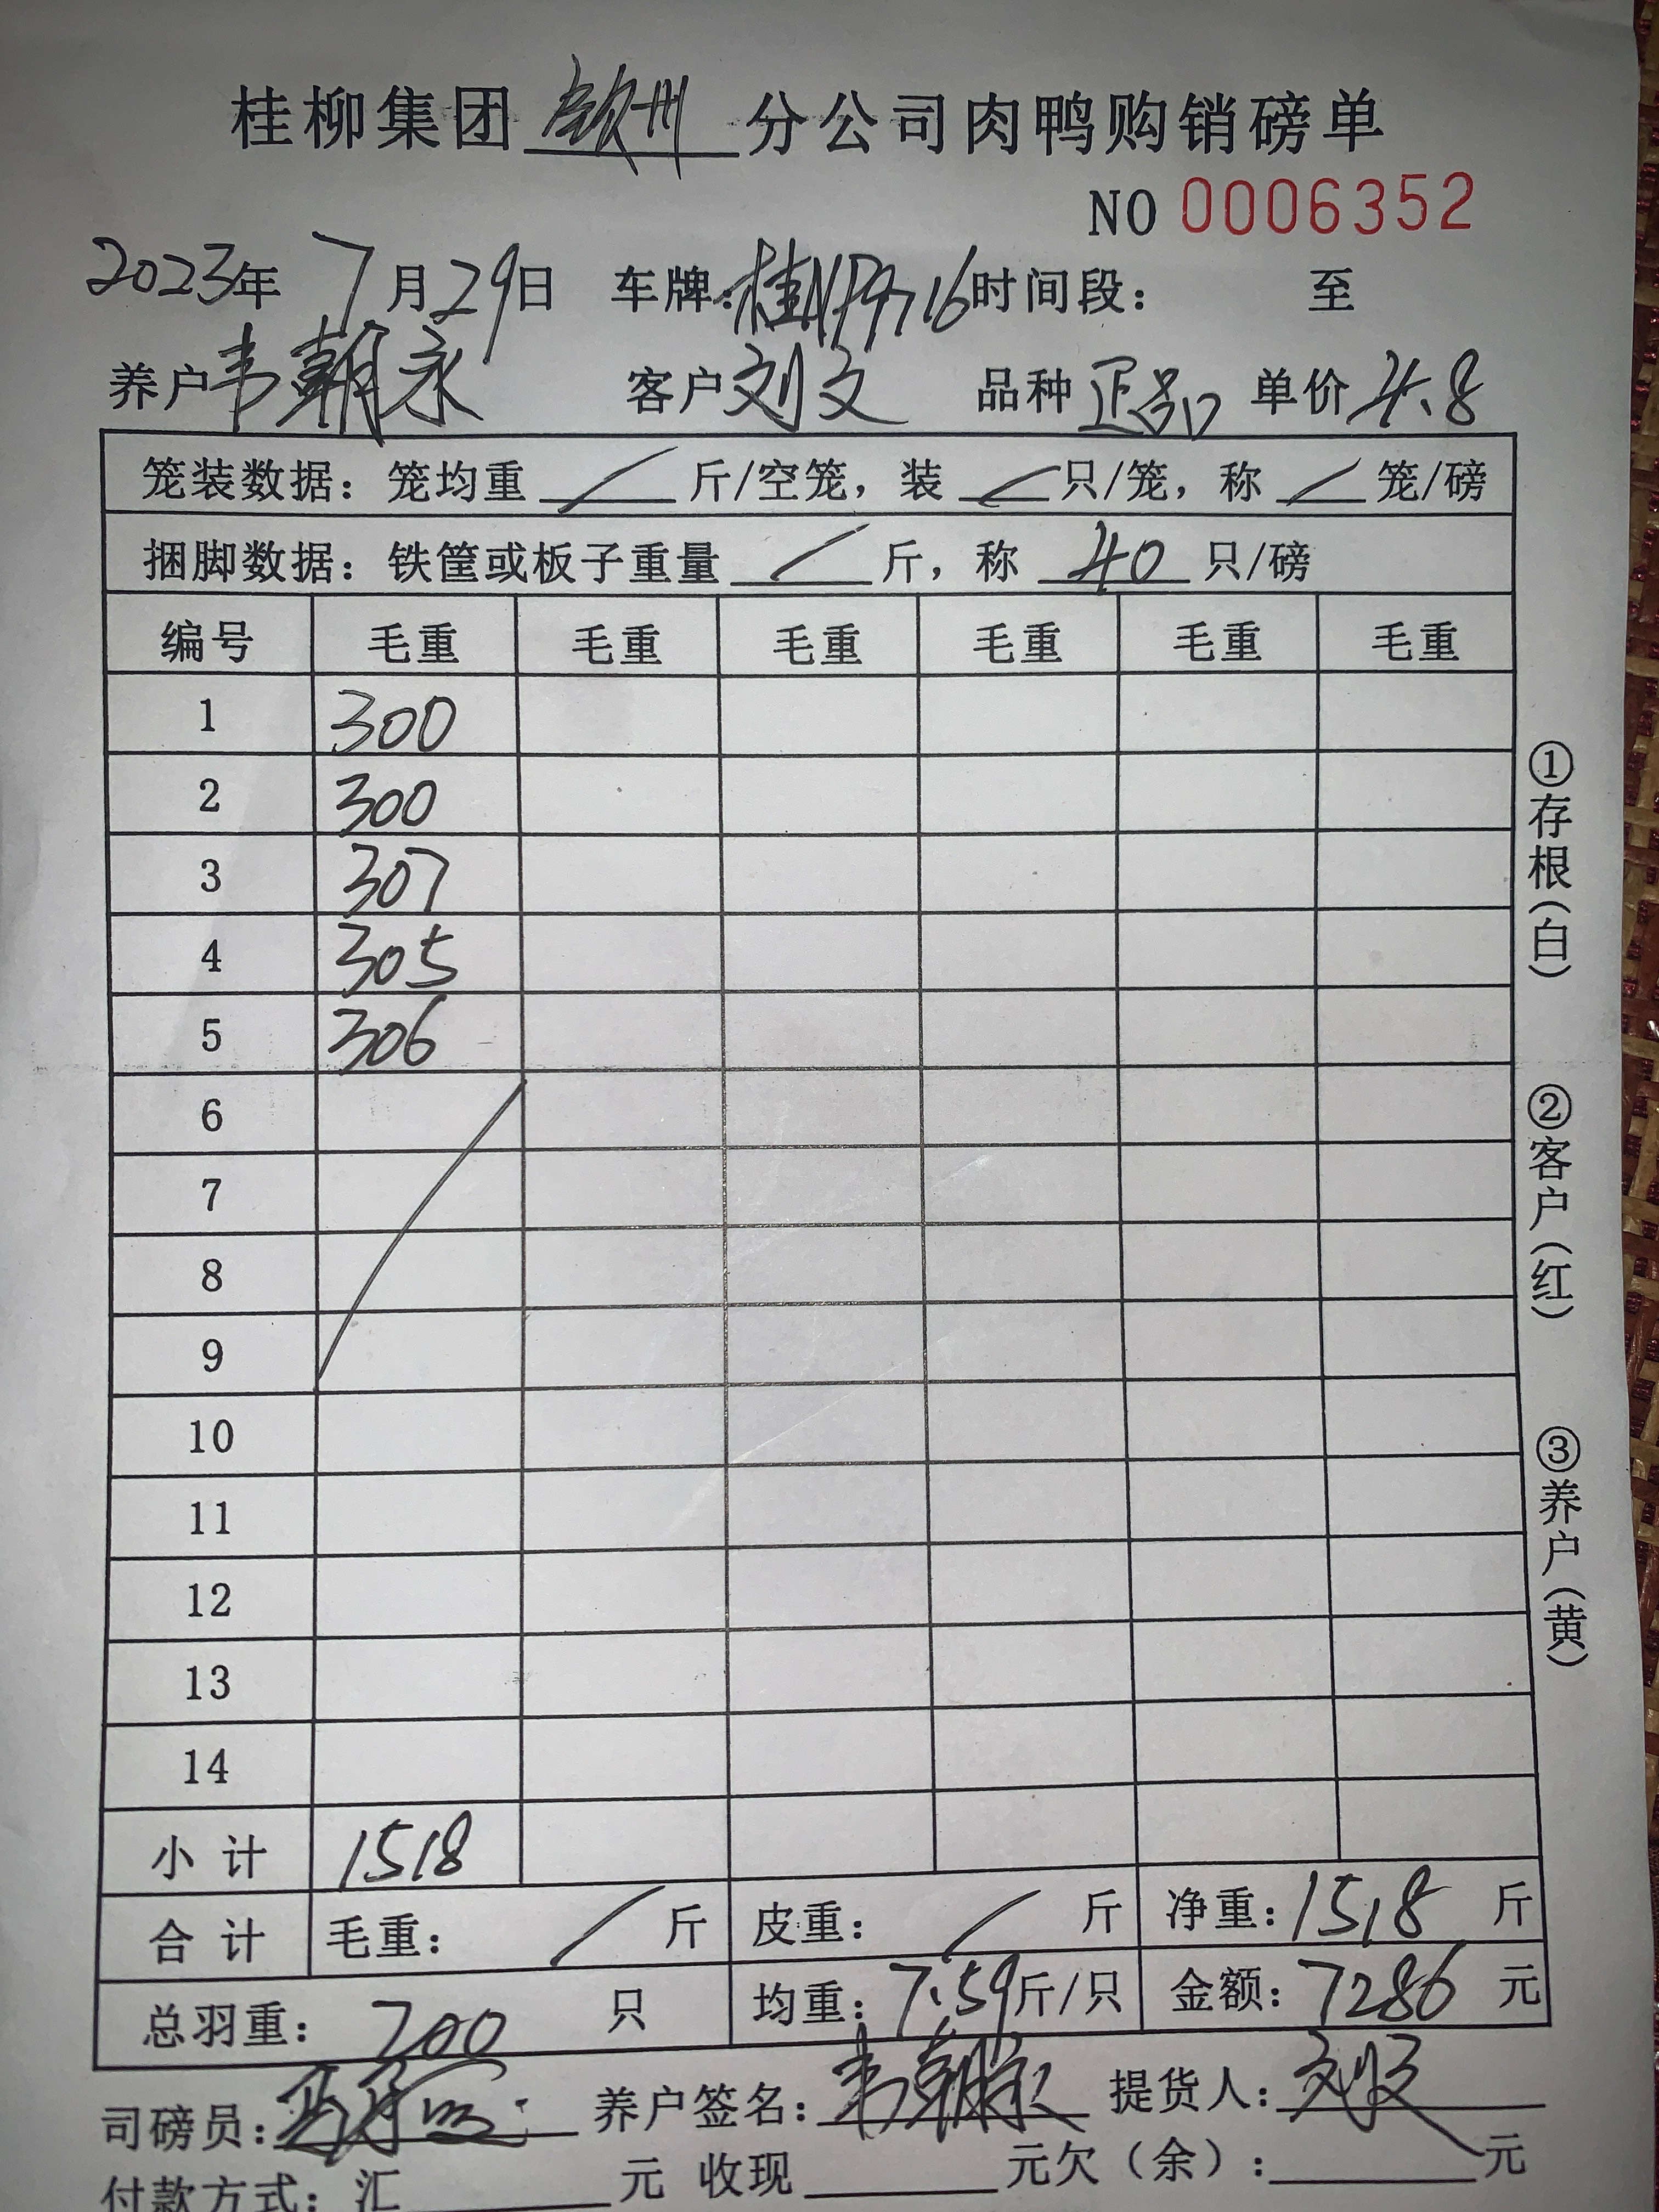 桂柳集团 钦州 分公司肉鸭购销磅单
NO 0006352
2023年 7月29日 车牌: 时间段: 至
养户 韦朝永 客户 刘文 品种 正品 单价 4.8
笼装数据: 笼均重 / 斤/空笼, 装 / 只/笼, 称 / 笼/磅
捆脚数据: 铁筐或板子重量 / 斤, 称 40 只/磅
编号 毛重 毛重 毛重 毛重 毛重 毛重
1 300
2 300
3 307
4 305
5 306
6
7
8
9
10
11
12
13
14
小计 1518
合计 毛重: / 斤 皮重: / 斤 净重: 1518 斤
总羽重: 200 只 均重: 7.59 斤/只 金额: 7286 元
司磅员: 养户签名: 韦朝永 提货人: 刘文
付款方式: 汇 元 收现 元欠(余): 元
①存根(白)
②客户(红)
③养户(黄)